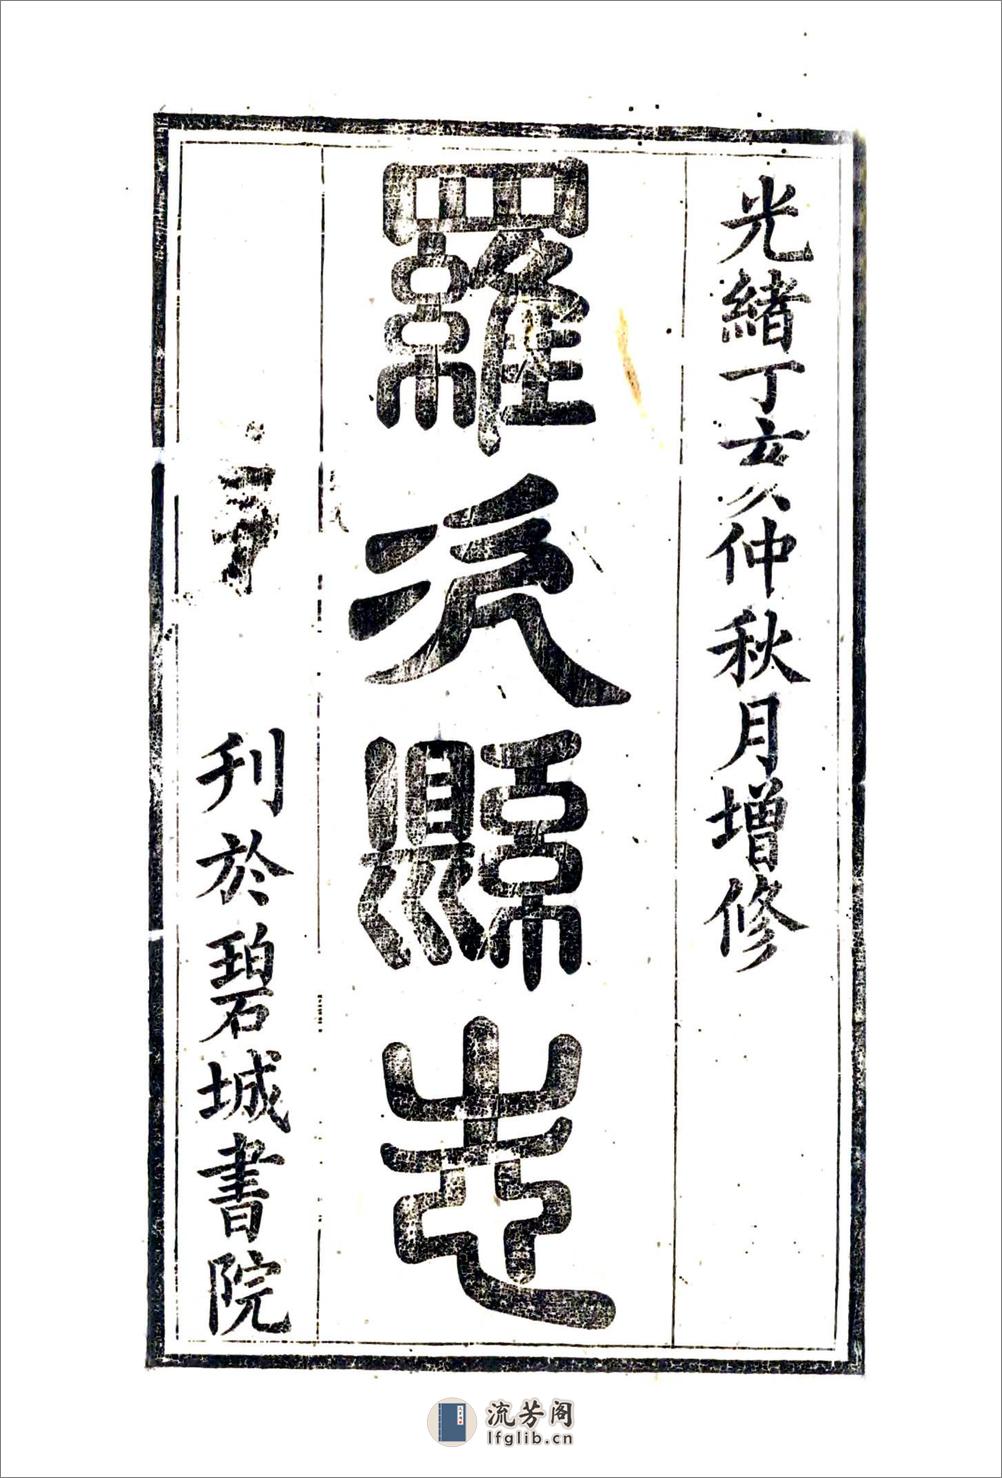 光緒丁亥仲秋月增修
羅次縣志
刊於碧城書院
流芳阁
lfglib.cn